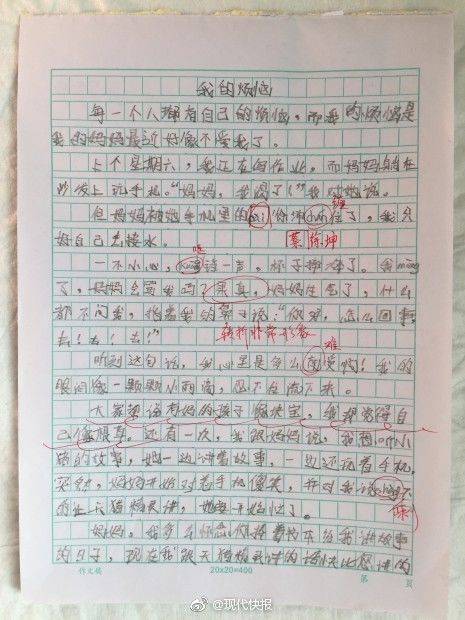 我的烦恼
每一个人都有自己的烦恼,而我的烦恼是
我的妈妈最近好像不爱我了。
上个星期六,我正在写作业,而妈妈躺在
沙发上玩手机。“妈妈,我渴了!”我对她说。
但妈妈被她手机里的 你 住了,我只
缠
好自己去接水。 蔡徐坤
哐
一不小心, 一声,杯子摔碎了。我
了,妈妈会骂我吗?果真,妈妈生气了,什么
都不问我,指着我的鼻子说:“你呀,怎么回事,
去!去!去!”
转折非常形象
难
听到这句话,我心里是多么 受啊!我的
眼泪像一颗颗小雨滴,忍不住流下来。
大家都说有妈的孩子像块宝,我却觉得自
己像根草。还有一次,我跟妈妈说,我想听小
猪的故事,她一边讲着故事,一边还玩着手机,
突然,妈妈开始对着手机傻笑,并对我说
让天猫精灵讲,她
陈
妈妈,我多么怀念你捧着书本给我讲故事
的日子,现在我跟天猫精灵讲的话快比您讲的
作文稿 20×20=400 第 页
@现代快报